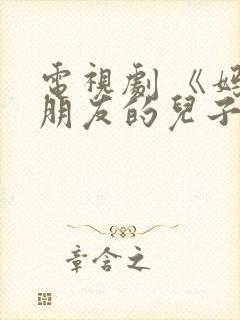 電視劇《媽
朋友的兒子
章含之